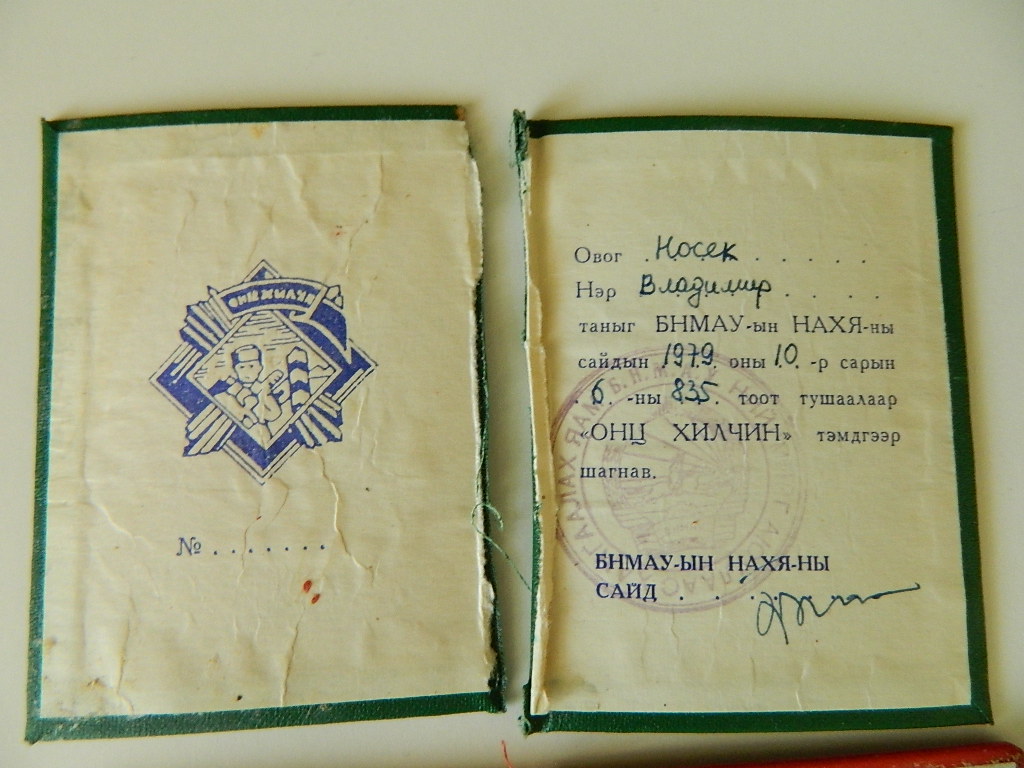 ОНЦ ХИЛЧИН
№ . . . . . . .
Овог . Носек . . . . . .
Нэр Владимир . . . .
таныг БНМАУ-ын НАХЯ-ны
сайдын 1979 оны 10. -р сарын
. 6 . -ны 835. тоот тушаалаар
«ОНЦ ХИЛЧИН» тэмдгээр
шагнав.
БНМАУ-ЫН НАХЯ-НЫ
САЙД . . . . .